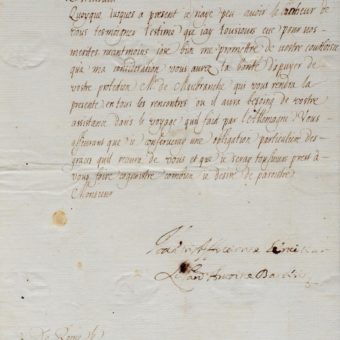 Monsieur
Quoyque jusques a present je naye peu avoir le bonheur de
vous tesmoigner l'estime que j'ay tousiours eue pour vos
merites neantmoins j'ose bien me promettre de vostre courtoisie
qua ma consideration vous aurez la bonté d'apuyer de
vostre protection M. de qui vous rendra la
presente en tous les rencontres ou il aura besoing de vostre
assistance dans le voyage quil faid par l'Allemagne. Vous
asseurant que je conserveray une obligation particuliere des
graces quil aura de vous et que je seray tousjours prest a
vous faire cognoistre combien je desire de paroistre
Monsieur
De Rome